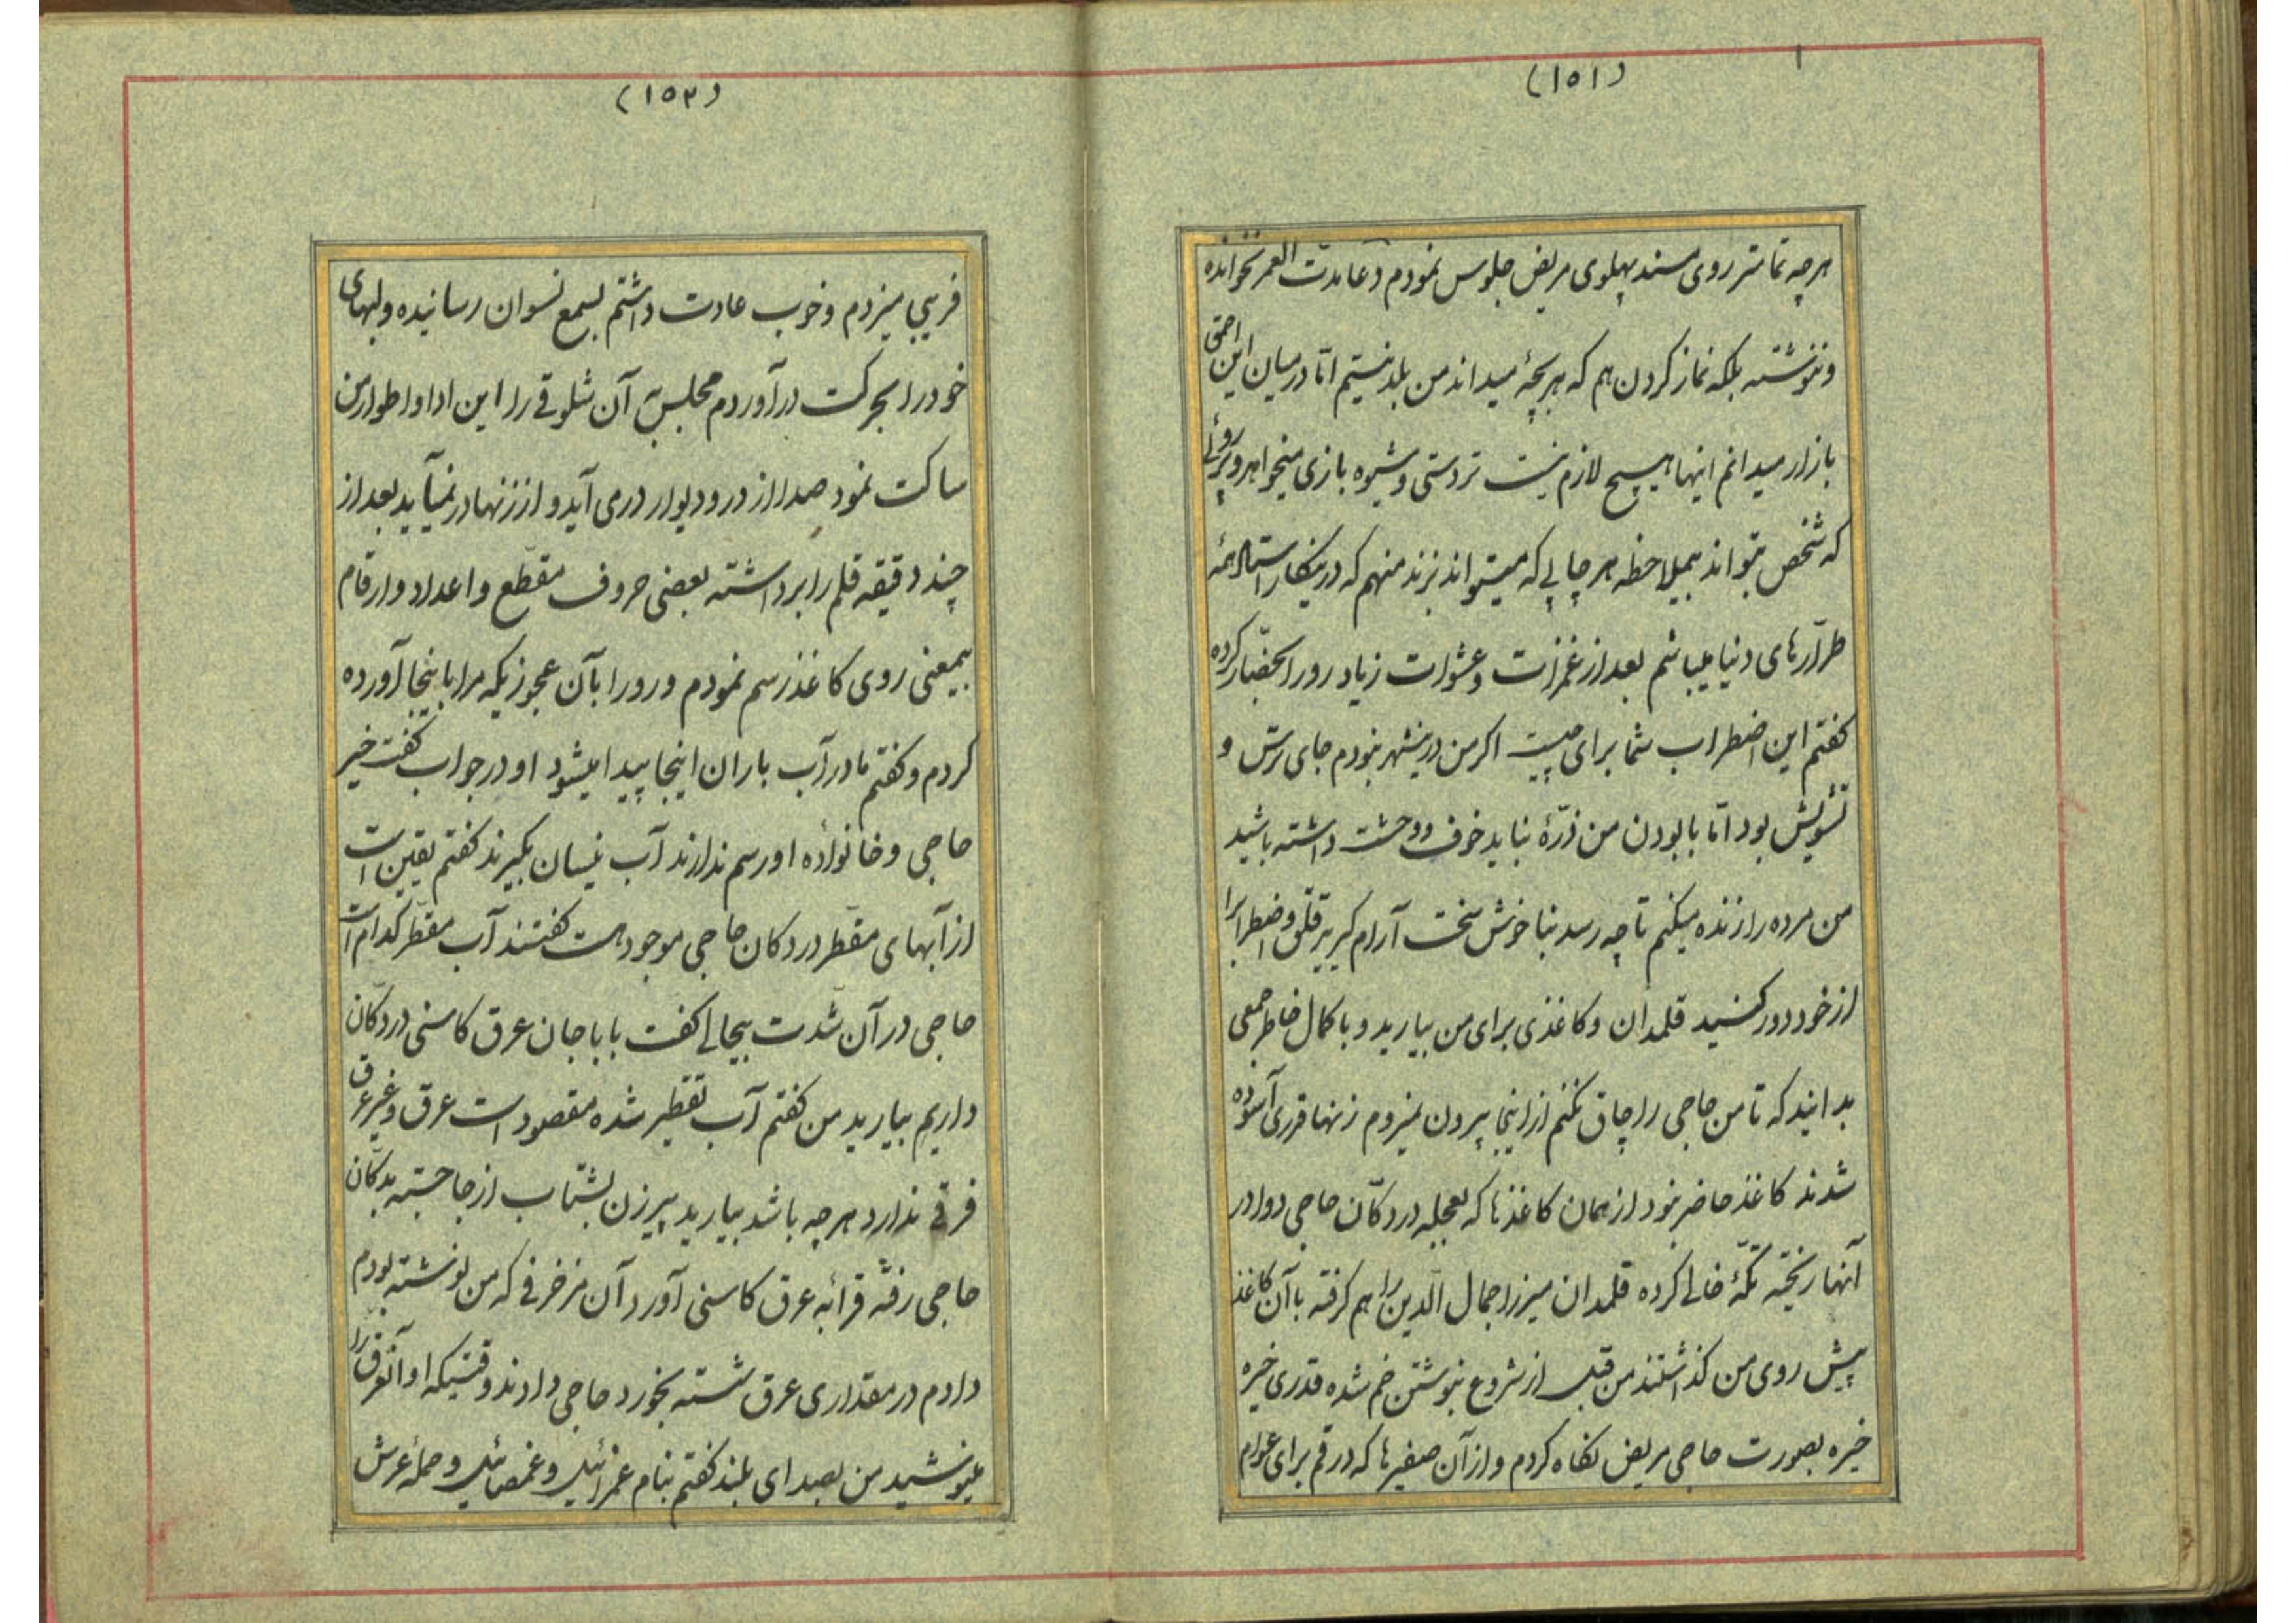 (۱۵۱)
هرچه تمامتر روی مسند پهلوی مریض جلوس نمودم دعا مدت العمر نخوانده
و ننوشته بلکه نماز کردن هم که هر بچهٔ میداند من بلد نیستم امّا در میان این احمق
بازار میدانم اینها هیچ لازم نیست تردستی و شیوه بازی میخواهد و پرروئی
که شخص بتواند بیملاحظه هر چاپی که میتواند بزند منهم که در اینکار استاد همهٔ
طرّارهای دنیا میباشم بعد از غمزات و عشوات زیاد رو را بحضّار کرده
کفتم این اضطراب شما برای چیست اکر من درینشهر نبودم جای ترس و
تشویش بود امّا با بودن من ذرّهٔ نباید خوف و وحشت داشته باشید
من مرده را زنده میکنم تا چه رسد بناخوش سخت آرام کیرید قلق و اضطرابرا
از خود دور کنید قلمدان و کاغذی برای من بیارید و با کمال خاطر جمعی
بدانید که تا من حاجی را چاق نکنم از اینجا بیرون نمیروم زنها قدری آسوده
شدند کاغذ حاضر نبود از همان کاغذها که بعجله در دکّان حاجی دوا در
آنها ریخته تکّهٔ خالی کرده قلمدان میرزا جمال الدین را هم کرفته با آن کاغذ
پیش روی من کذاشتند من قبل از شروع بنوشتن خم شده قدری خیره
خیره بصورت حاجی مریض نکاه کردم و از آن صفیرها که در قم برای عوام
(۱۵۲)
فریبی میزدم و خوب عادت داشتم بسمع نسوان رسانیده و لبهای
خود را بحرکت در آوردم مجلس آن شلوقی را این ادا و اطوار من
ساکت نمود صدا از در و دیوار در می آید و از زنها در نمیآید بعد از
چند دقیقه قلم را برداشته بعضی حروف مقطّع و اعداد و ارقام
بیمعنی روی کاغذ رسم نمودم و رو را بآن عجوزیکه مرا باینجا آورده
کردم و کفتم مادر آب باران اینجا پیدا میشود او در جواب کفت خیر
حاجی و خانوادهٔ او رسم ندارند آب نیسان بکیرند کفتم یقین است
از آبهای مقطّر در دکان حاجی موجود هست کفتند آب مقطّر کدام است
حاجی در آن شدت بیحالی کفت باباجان عرق کاسنی در دکّان
داریم بیارید من کفتم آب تقطیر شده مقصود است عرق و غیر عرق
فرقی ندارد هرچه باشد بیارید پیرزن بشتاب از جا جسته بدکّان
حاجی رفته قرابهٔ عرق کاسنی آورد آن مزخرفی که من نوشته بودم
دادم در مقداری عرق شسته بخورد حاجی دادند وقتیکه او آنعرق را
مینوشید من بصدای بلند کفتم بنام عمرائیل و غمصائیل و حملهٔ عرش